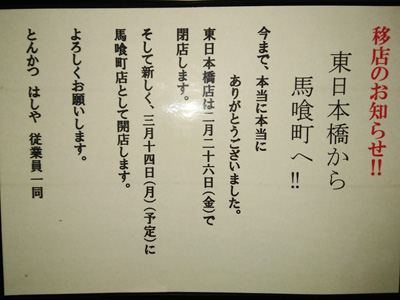 移店のお知らせ!!
東日本橋から
馬喰町へ!!
今まで、本当に本当に
ありがとうございました。
東日本橋店は二月二十六日(金)で
閉店します。
そして新しく、三月十四日(月)(予定)に
馬喰町店として開店します。
よろしくお願いします。
とんかつ はしや 従業員一同